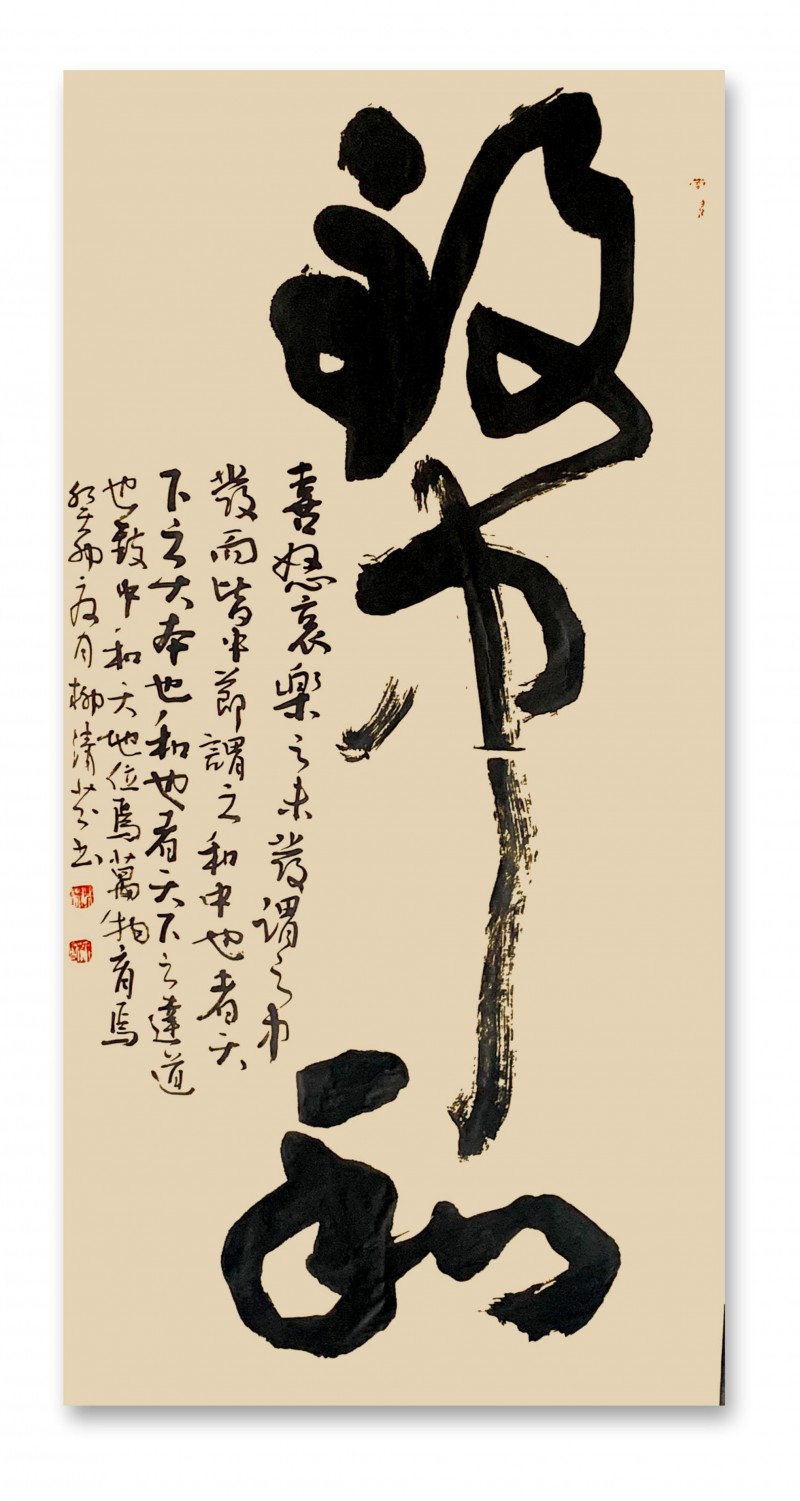 致中和
喜怒哀樂之未發謂之中
發而皆中節謂之和中也者天
下之大本也和也者天下之達道
也致中和天地位焉萬物育焉
癸卯夏月柳清芬书